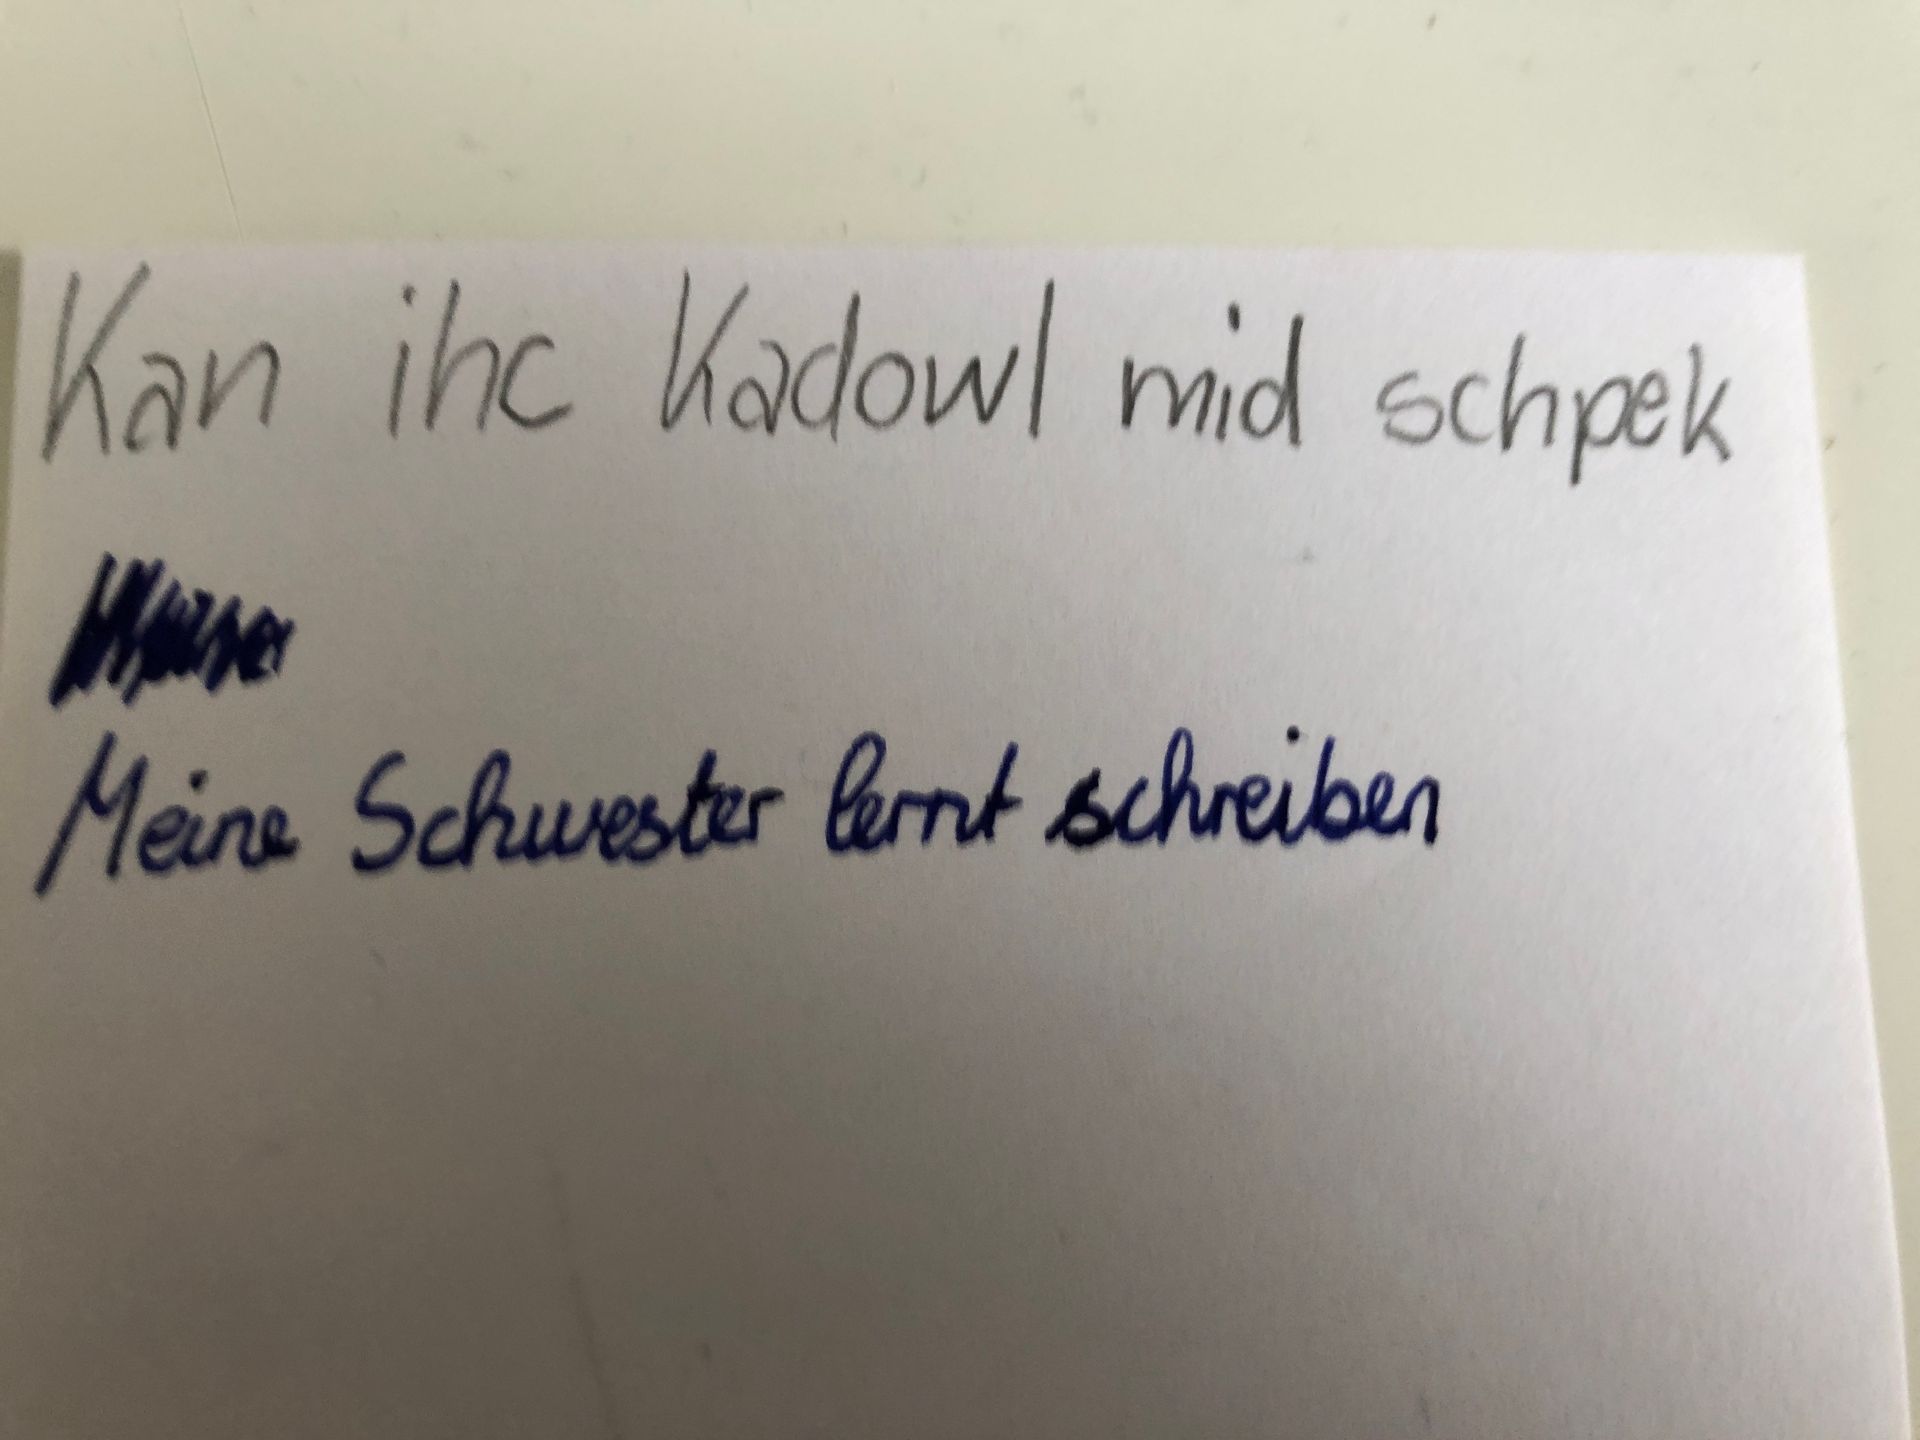 Kan ihc Kadowl mid schpek
Meine Schwester lernt schreiben